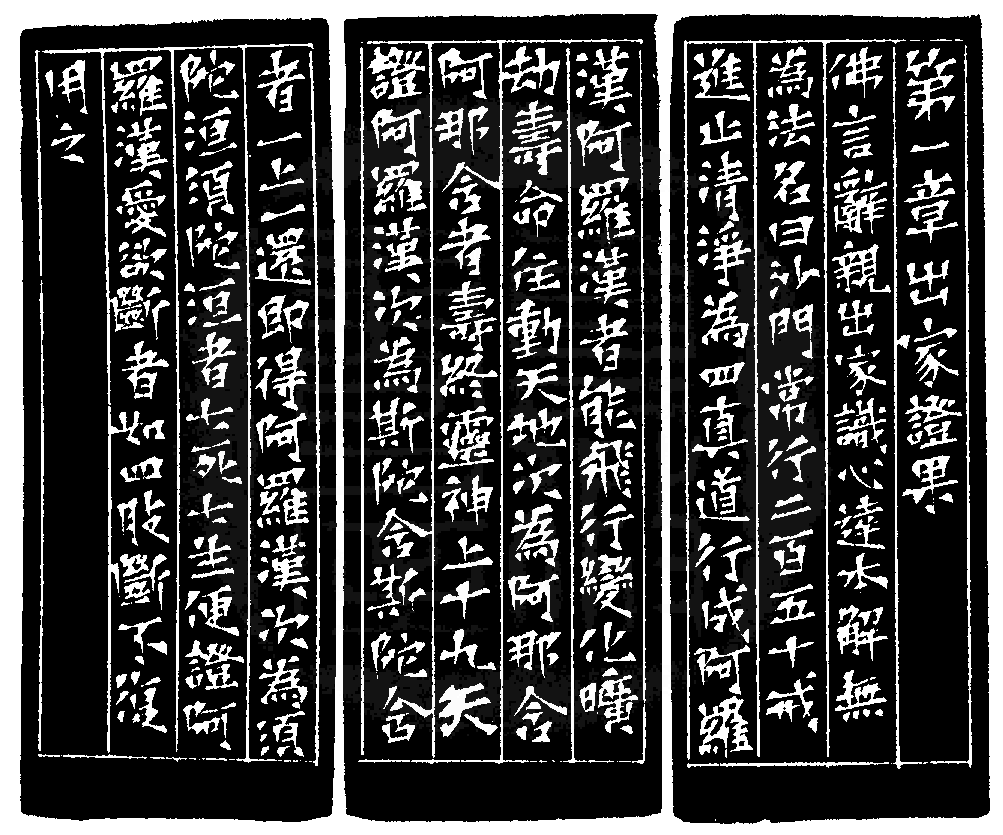 第一章出家證果
佛言辭親出家識心達本解無
為法名曰沙門常行二百五十戒
進止清淨為四真道行成阿羅
漢阿羅漢者能飛行變化曠
劫壽命住動天地次為阿那含
阿那含者壽終靈神上十九天
證阿羅漢次為斯陀含斯陀含
者一上一還即得阿羅漢次為須
陀洹須陀洹者七死七生便證阿
羅漢愛欲斷者如四肢斷不復
用之